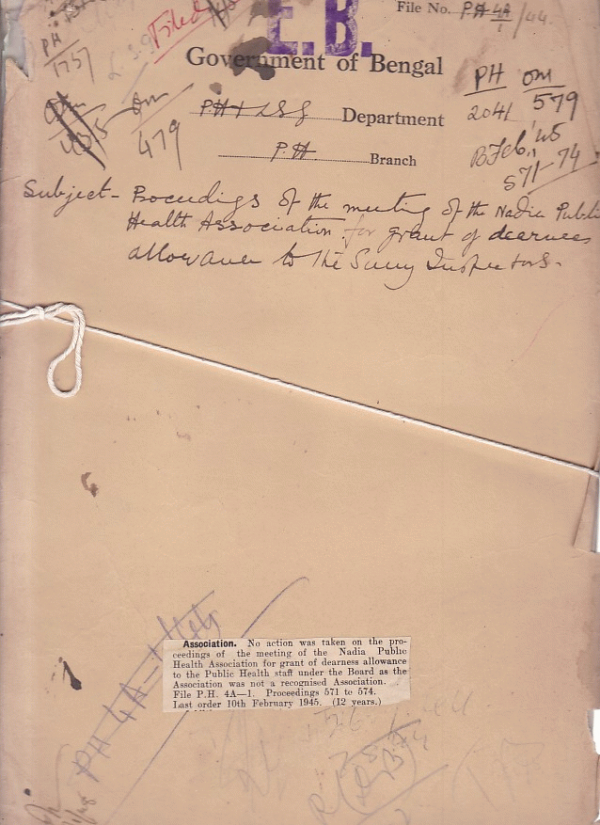 E.B.
File No. PH 4A/1/44.
Filed
PH
1757
Government of Bengal
PH
2041
Om
579
B Feb, '45
571-74
Om
479
PH & LSG Department
P.H. Branch
Subject - Proceedings of the meeting of the Nadia Public
Health Association for grant of dearness
allowance to the Sany Inspectors.
PH 4A-1
Association. No action was taken on the pro-
ceedings of the meeting of the Nadia Public
Health Association for grant of dearness allowance
to the Public Health staff under the Board as the
Association was not a recognised Association.
File P.H. 4A—1. Proceedings 571 to 574.
Last order 10th February 1945. (12 years.)